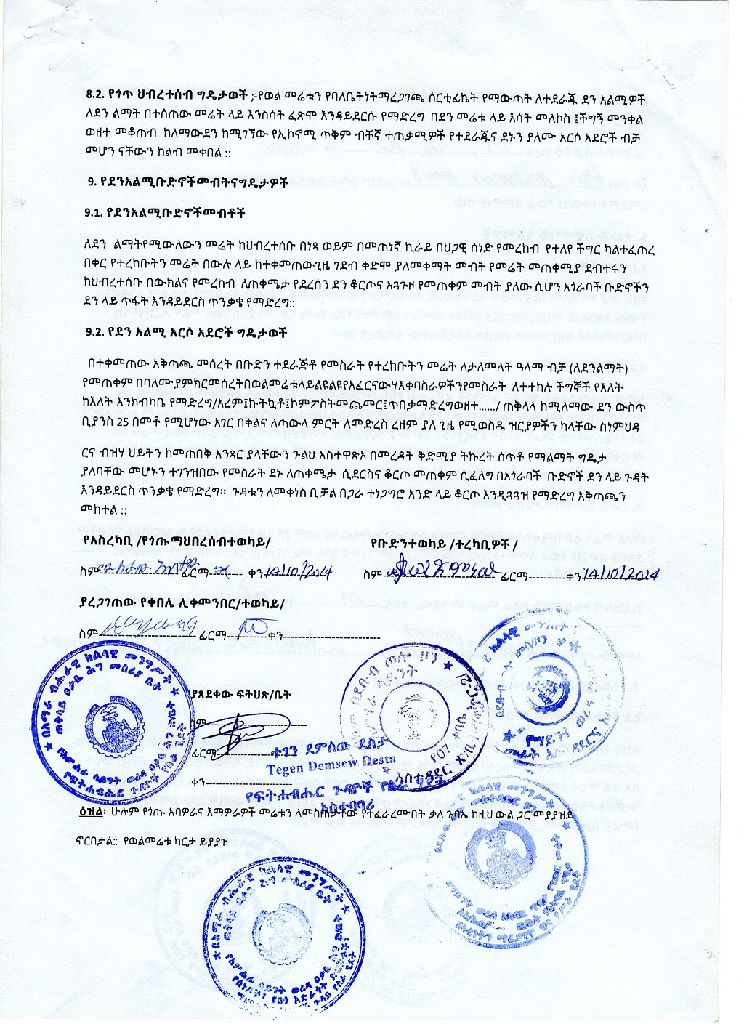 8.2. የጎጥ ህብረተሰብ ግዴታወች ;-የወል መሬቱን የባለቤትነትማረጋገጫ ሰርቲፊኬት የማውጣት ለተደራጁ ደን አልሚዎች
ለደን ልማት በተሰጠው መሬት ላይ እንስሳት ፈጽሞ እንዳይደርሱ የማድረግ በደን መሬቱ ላይ እሳት መለኮስ ፤ችግኝ መንቀል
ወዘተ መቆጠብ ከለማውደን ከሚገኘው የኢኮኖሚ ጥቅም ብቸኛ ተጠቃሚዎች የተደራጁና ደኑን ያለሙ አርሶ አደሮች ብቻ
መሆን ናቸውን ከልብ መቀበል ፡፡
9. የደንአልሚቡድኖችመብትናግዴታዎች
9.1. የደንአልሚቡድኖችመብቶች
ለደን ልማትየሚውለውን መሬት ከህብረተሰቡ በነጻ ወይም በመጠነኛ ኪራይ በህጋዊ ሰነድ የመረከብ የተለየ ችግር ካልተፈጠረ
በቀር የተረከቡትን መሬት በውሉ ላይ ከተቀመጠውጊዜ ገደብ ቀድሞ ያለመቀማት መብት የመሬት መጠቀሚያ ደብተሩን
ከህብረተሰቡ በውክልና የመረከብ ለጠቀሜታ የደረሰን ደን ቆርጦና አጓጉዞ የመጠቀም መብት ያለው ሲሆን አጎራባች ቡድኖችን
ደን ላይ ጥፋት እንዳይደርስ ጥንቃቄ የማድረግ፡፡
9.2. የደን አልሚ አርሶ አደሮች ግዴታወች
በተቀመጠው አቅጣጫ መሰረት በቡድን ተደራጅቶ የመስራት የተረከቡትን መሬት ለታለመላት ዓላማ ብቻ (ለደንልማት)
የመጠቀም በባለሙያምክርመሰረትበወልመሬቱላይልዩልዩየአፈርናውሃእቀባስራዎችንየመስራት ለተተከሉ ችግኞች የእለት
ከእለት እንክብካቤ የማድረግ/አረም፤ኩትኳቶ፤ኮምፖስትመጨመር፤ጥበቃማድረግወዘተ....../ ጠቅላላ ከሚለማው ደን ውስጥ
ቢያንስ 25 በመቶ የሚሆነው አገር በቀልና ለጣውላ ምርት ለመድረስ ረዘም ያለ ጊዜ የሚወስዱ ዝርያዎችን ካላቸው ስነምህዳ
ርና ብዝሃ ህይትን ከመጠበቅ አንጻር ያላቸውን ጉልህ አስተዋጽኦ በመረዳት ቅድሚያ ትኩረት ሰጥቶ የማልማት ግዴታ
ያለባቸው መሆኑን ተገንዝበው የመስራት ደኑ ለጠቀሜታ ሲደርስና ቆርጦ መጠቀም ሲፈልግ በአጎራባች ቡድኖች ደን ላይ ጉዳት
እንዳይደርስ ጥንቃቄ የማድረግ፡፡ ጉዳቱን ለመቀነስ ቢቻል በጋራ ተነጋግሮ አንድ ላይ ቆርጦ እንዲጓጓዝ የማድረግ አቅጣጫን
መከተል ፡፡
የአስረካቢ /የጎጡማህበረሰብተወካይ/ የቡድንተወካይ /ተረካቢዎች /
ስም ፊርማ ቀን 10/10/2014 ስም ፊርማ ቀን 10/10/2014
ያረጋገጠው የቀበሌ ሊቀመንበር/ተወካይ/
ስም ፊርማ ቀን
ያጸደቀው ፍትህጽ/ቤት
ስም
ፊርማ ተገን ደምሰው ደስታ
Tegen Demsew Desta
ቀን
የፍትሐብሔር ጉዳዮች የስራ
አስተባባሪ
ዕዝል፡ ሁሉም የጎጡ አባዎራና እማዎራዎች መሬቱን ለመስጠታቸው የተፈራረሙበት ቃለ ጉባኤ ከዚህ ውል ጋር መያያዝይ
ኖርበታል፡፡ የወልመሬቱ ካርታ ይያያዝ